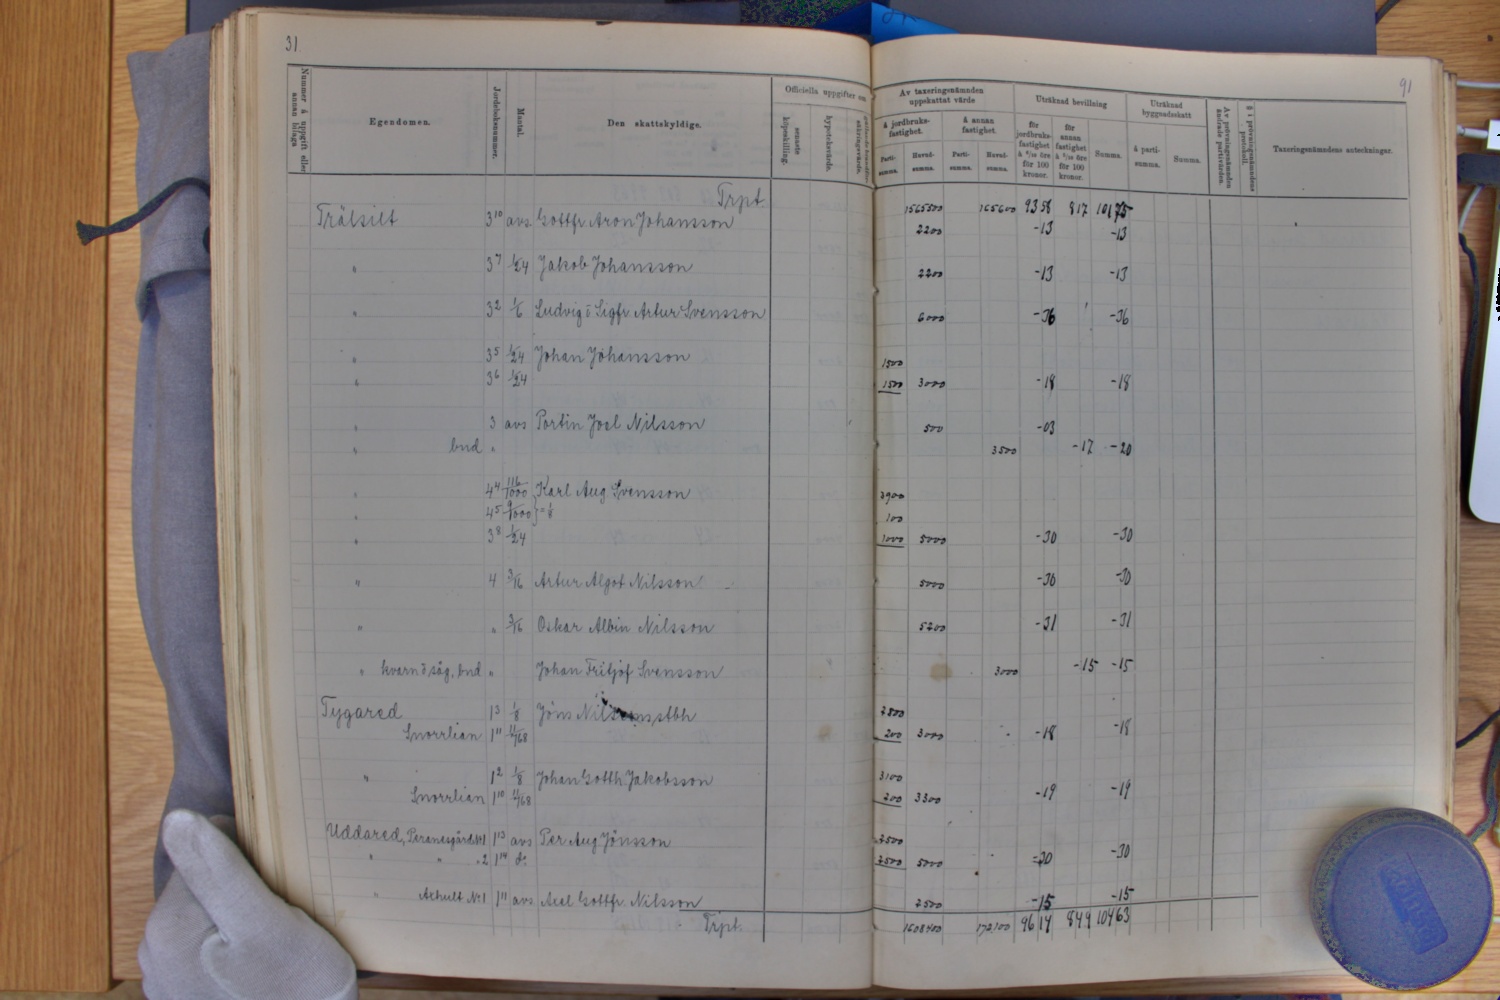 31
91
Nummer å uppgift eller annan bilaga
Egendomen.
Jordeboksnummer.
Mantal.
Den skattskyldige.
Officiella uppgifter om
senaste köpeskilling.
hypoteksvärde.
Av taxeringsnämnden uppskattat värde
Å jordbruksfastighet.
Å annan fastighet.
Partisumma.
Huvudsumma.
Partisumma.
Huvudsumma.
Uträknad bevillning
för jordbruksfastighet å 6/10 öre för 100 kronor.
för annan fastighet å 5/10 öre för 100 kronor.
Summa.
Uträknad byggnadsskatt
Å partisumma.
Summa.
Av prövningsnämnden ändrade partivärden.
§ i prövningsnämndens protokoll.
Taxeringsnämndens anteckningar.
Trpt. 1565500 165600 9358 817 10175
Trälsilt 3 10 avs. Gottfr Aron Johansson 2200 -13 -13
" 3 7 1/24 Jakob Johansson 2200 -13 -13
" 3 2 1/6 Ludvig o Sigfr Artur Svensson 6000 -36 -36
" 3 5 1/24 Johan Johansson 1500
" 3 6 1/24 1500 3000 -18 -18
" 3 avs Portin Joel Nilsson 500 -03
" bnd " 3500 -17 -20
" 4 4 116/1000 Karl Aug Svensson 3900
" 4 5 9/1000 = 1/8 100
" 3 8 1/24 1000 5000 -30 -30
" 4 3/16 Artur Algot Nilsson 5000 -30 -30
" " 3/16 Oskar Albin Nilsson 5200 -31 -31
" kvarn o såg, bnd " Johan Fritjof Svensson 3000 -15 -15
Tygared 1 3 1/8 Jöns Nilssons stbh 2800
Snorrlian 1 11 11/768 200 3000 -18 -18
" 1 2 1/8 Johan Gotth Jakobsson 3100
Snorrlian 1 10 11/768 200 3300 -19 -19
Uddared, Peranesgård No 1 1 13 avs Per Aug Jönsson 2500
" " " 2 1 14 do 2500 5000 -30 -30
" Axhult No 1 1 11 avs Axel Gottfr. Nilsson 2500 -15 -15
Trpt. 1608400 172100 9614 849 10463